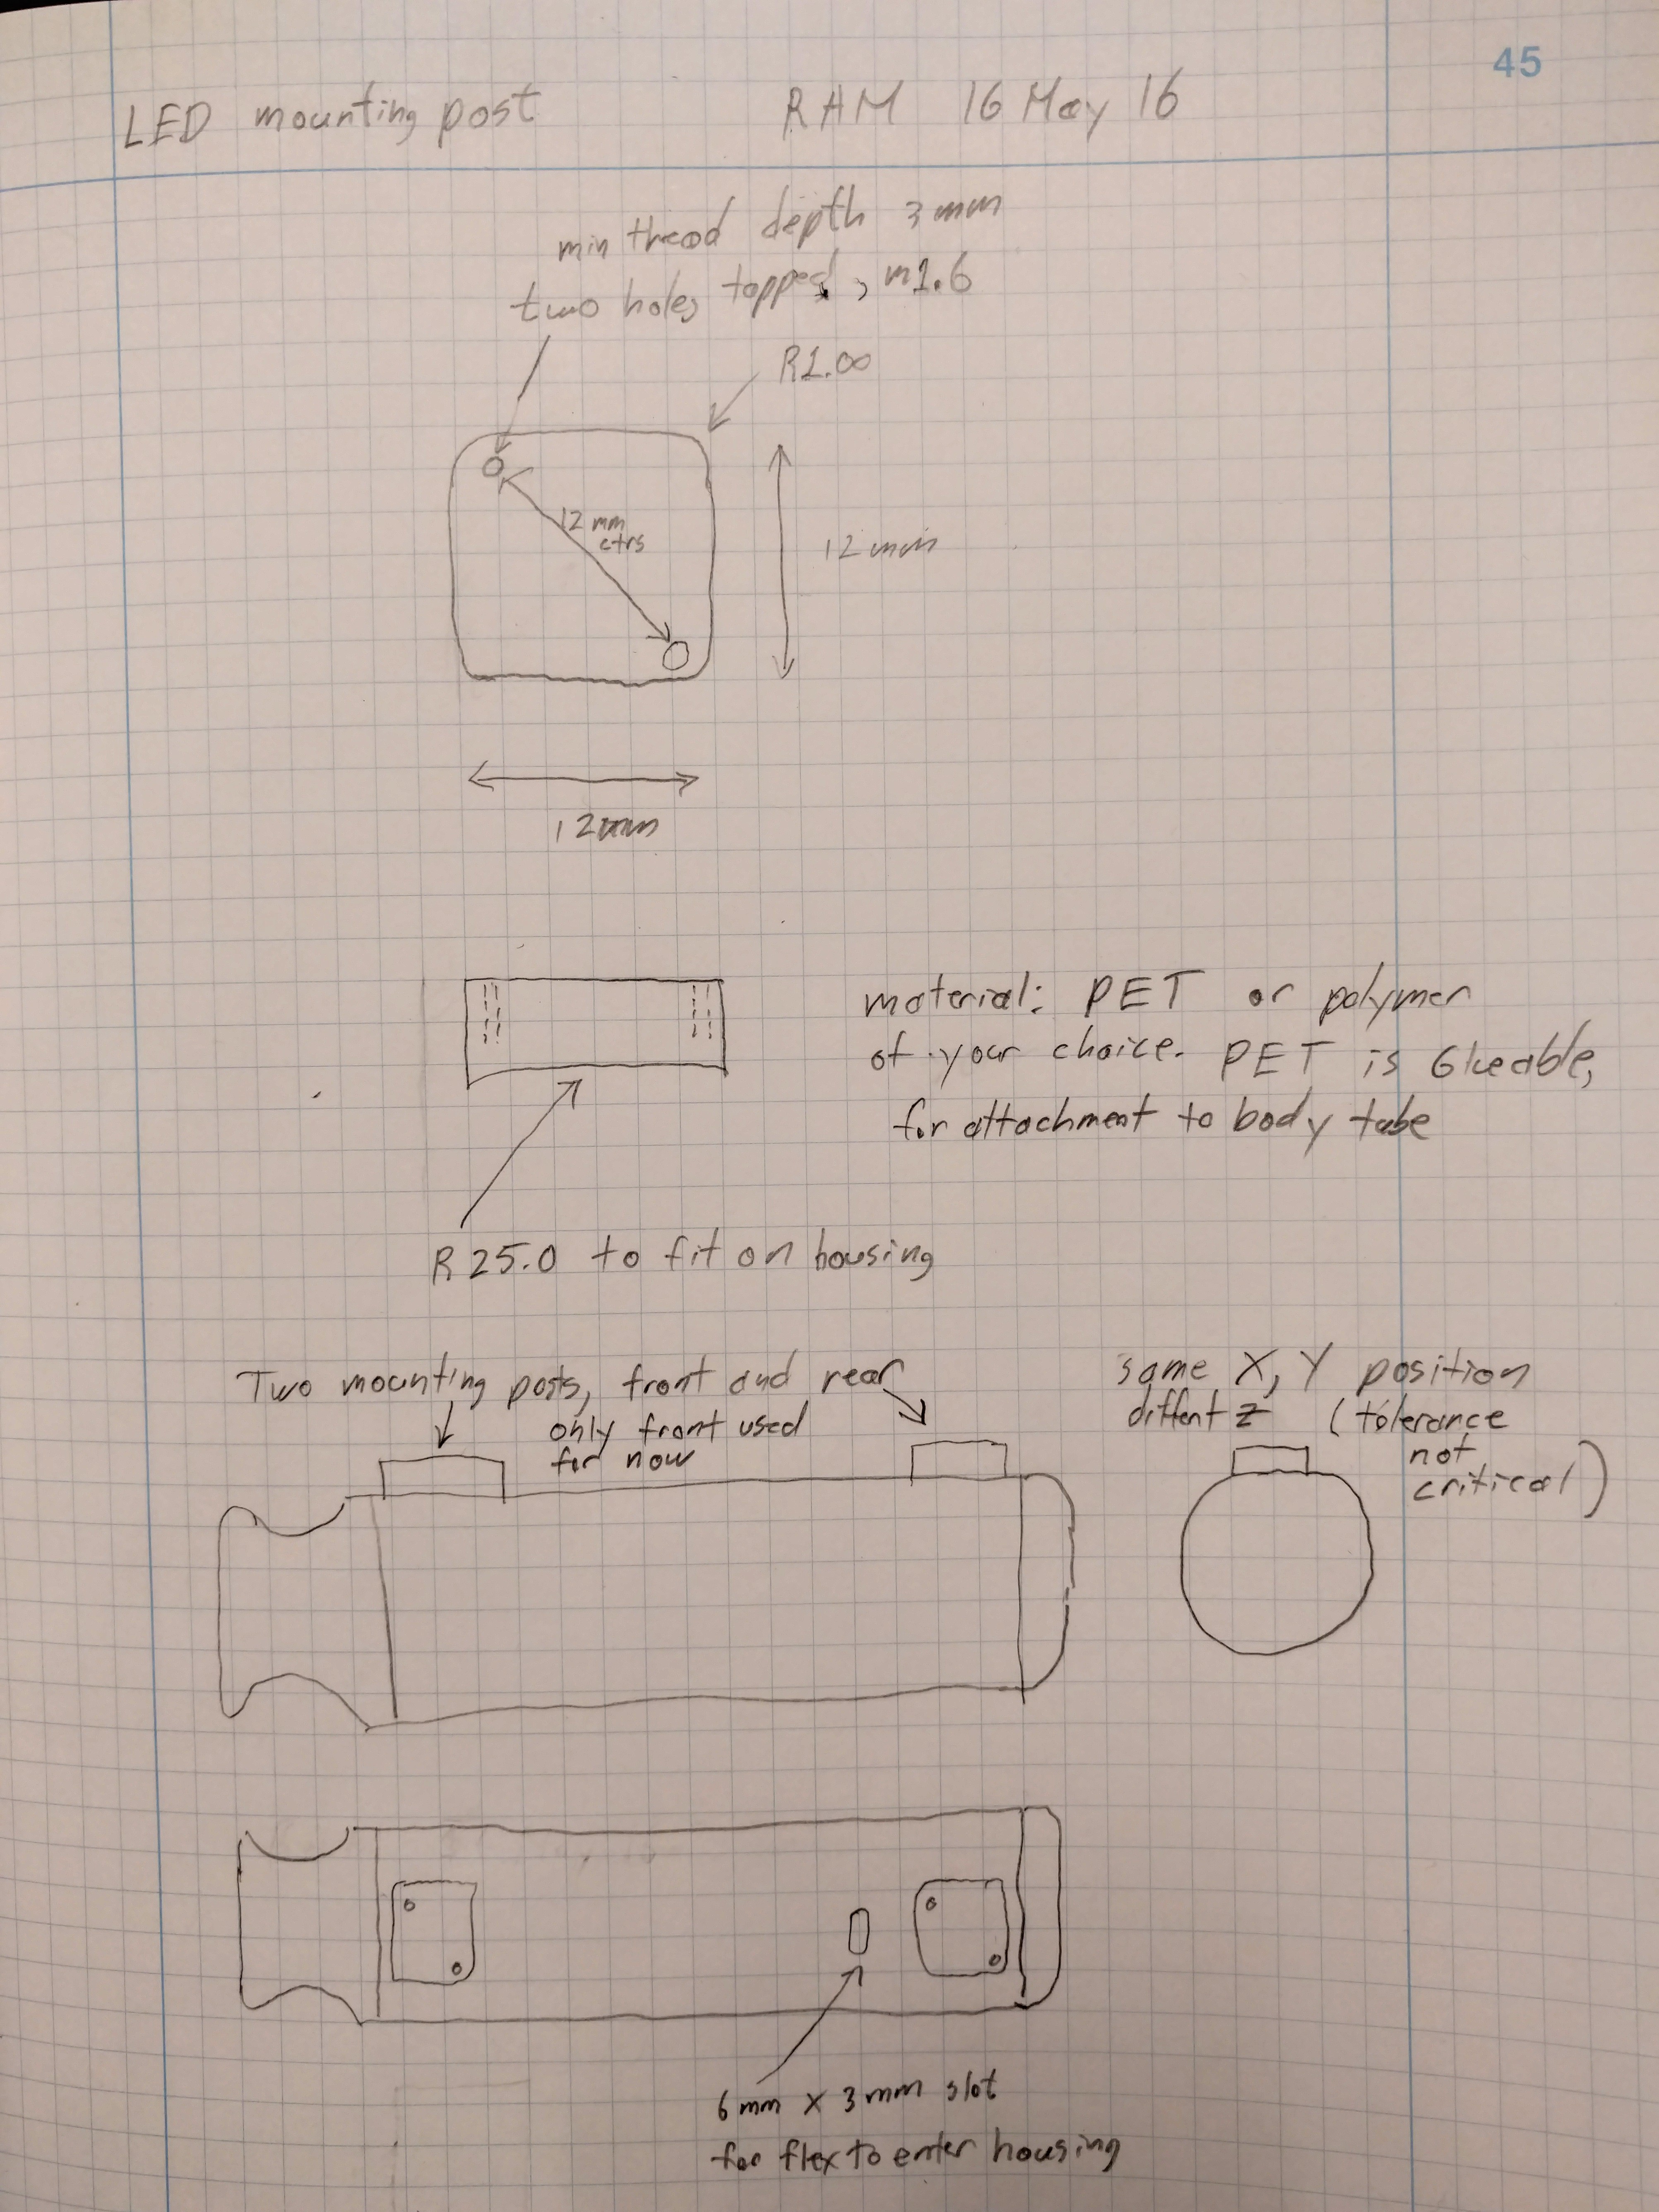 45
LED mounting post RAM 16 May 16
min thread depth 3mm
two holes tapped, m1.6
R1.00
12 mm
ctrs
12mm
12mm
material: PET or polymer
of your choice. PET is Glueable,
for attachment to body tube
R 25.0 to fit on housing
Two mounting posts, front and rear
only front used
for now
same X, Y position
diffent Z (tolerance
not
critical)
6mm x 3mm slot
for flex to enter housing